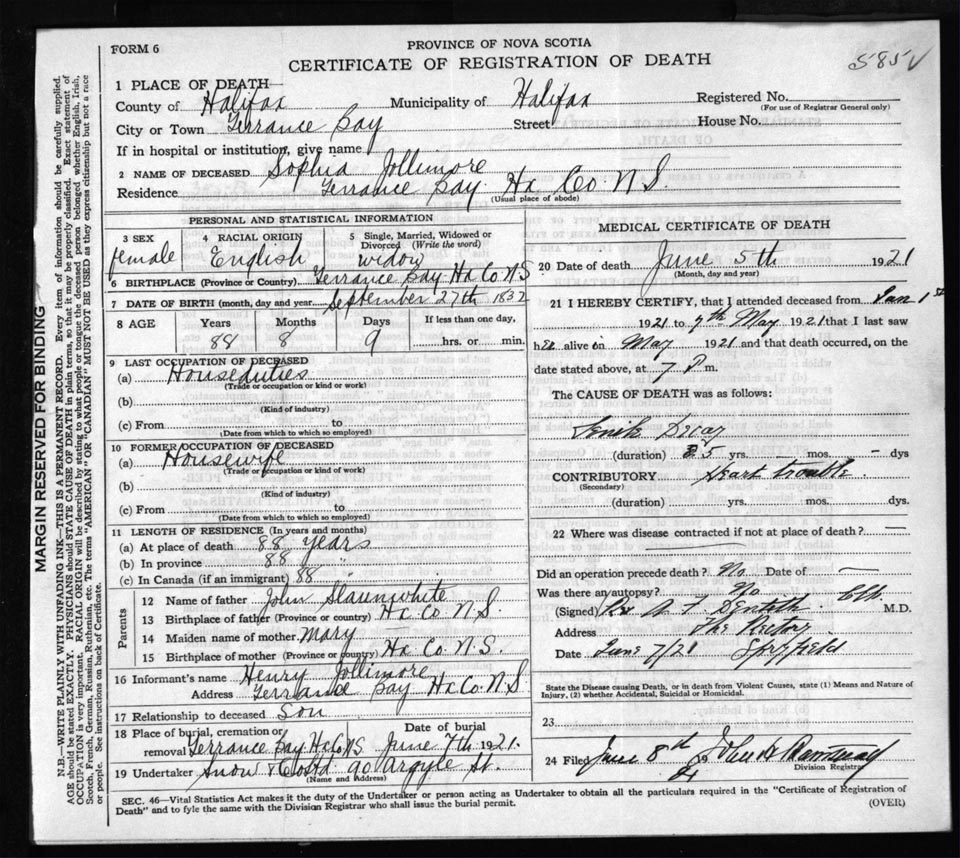 FORM 6
PROVINCE OF NOVA SCOTIA
CERTIFICATE OF REGISTRATION OF DEATH
585
1 PLACE OF DEATH
County of Halifax Municipality of Halifax Registered No.
(For use of Registrar General only)
City or Town Terrance Bay Street House No.
If in hospital or institution, give name
2 NAME OF DECEASED Sophia Jollimore
Residence Terrance Bay Hx Co. N.S.
(Usual place of abode)
PERSONAL AND STATISTICAL INFORMATION
3 SEX 4 RACIAL ORIGIN 5 Single, Married, Widowed or Divorced (Write the word)
female English widow
6 BIRTHPLACE (Province or Country) Terrance Bay Hx Co N S
7 DATE OF BIRTH (month, day and year) September 27th 1832
8 AGE Years Months Days If less than one day,
88 8 9 hrs. or min.
9 LAST OCCUPATION OF DECEASED
(a) Houseduties
(Trade or occupation or kind of work)
(b)
(Kind of industry)
(c) From to
(Date from which to which so employed)
10 FORMER OCCUPATION OF DECEASED
(a) Housewife
(Trade or occupation or kind of work)
(b)
(Kind of industry)
(c) From to
(Date from which to which so employed)
11 LENGTH OF RESIDENCE (In years and months)
(a) At place of death 88 years
(b) In province 88 "
(c) In Canada (if an immigrant) 88 "
Parents
12 Name of father John Slaunwhite
13 Birthplace of father (Province or country) Hx Co N.S.
14 Maiden name of mother Mary
15 Birthplace of mother (Province or country) Hx Co N.S.
16 Informant's name Henry Jollimore
Address Terrance Bay Hx Co. N S
17 Relationship to deceased Son
18 Place of burial, cremation or removal Terrance Bay Hx Co NS Date of burial June 7th 1921.
19 Undertaker Snow & Co Ltd 90 Argyle St.
(Name and Address)
MEDICAL CERTIFICATE OF DEATH
20 Date of death June 5th 1921
(Month, day and year)
21 I HEREBY CERTIFY, that I attended deceased from Jan 1st
1921 to 7th May 1921 that I last saw
her alive on May 1921 and that death occurred, on the
date stated above, at 7 P m.
The CAUSE OF DEATH was as follows:
Senile Decay
(duration) 5 yrs. — mos. — dys
CONTRIBUTORY Heart trouble
(Secondary)
(duration) yrs. mos. dys.
22 Where was disease contracted if not at place of death? —
Did an operation precede death? No Date of —
Was there an autopsy? No
(Signed) Rev M.D.
Address The Rectory
Date June 7/21 Spryfield
State the Disease causing Death, or in death from Violent Causes, state (1) Means and Nature of Injury, (2) whether Accidental, Suicidal or Homicidal.
23
24 Filed June 8th John
Division Registrar
SEC. 46—Vital Statistics Act makes it the duty of the Undertaker or person acting as Undertaker to obtain all the particulars required in the "Certificate of Registration of
Death" and to fyle the same with the Division Registrar who shall issue the burial permit. (OVER)
MARGIN RESERVED FOR BINDING
N.B.—WRITE PLAINLY WITH UNFADING INK—THIS IS A PERMANENT RECORD. Every item of information should be carefully supplied.
AGE should be stated EXACTLY. PHYSICIANS should STATE CAUSE OF DEATH in plain terms, so that it may be properly classified. Exact statement of
OCCUPATION is very important. RACIAL ORIGIN will be described by stating to what people or tongue the deceased person belonged whether English, Irish,
Scotch, French, German, Russian, Ruthenian, etc. The terms "AMERICAN" or "CANADIAN" MUST NOT BE USED as they express citizenship but not a race
or people. See instructions on back of Certificate.